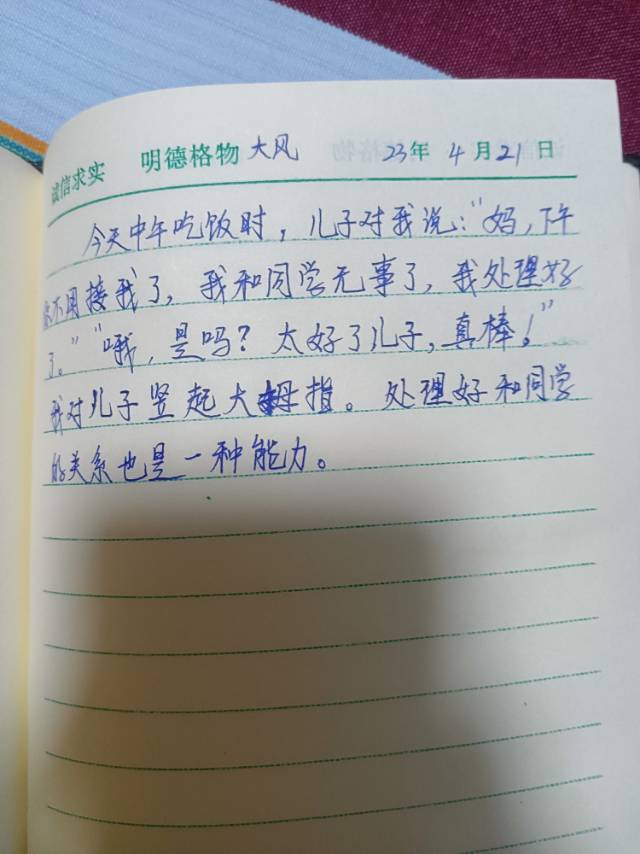 诚信求实 明德格物 大风 23年 4月21日
今天中午吃饭时，儿子对我说：“妈，下午
你不用接我了，我和同学无事了，我处理好
了。”“哦，是吗？太好了儿子，真棒！”
我对儿子竖起大拇指。处理好和同学
的关系也是一种能力。